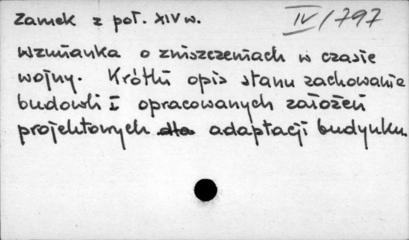 Zamek z poł. XIV w. IV/797
wzmianka o zniszczeniach w czasie
wojny. Krótki opis stanu zachowania
budowli i opracowanych założeń
projektowych dla adaptacji budynku.